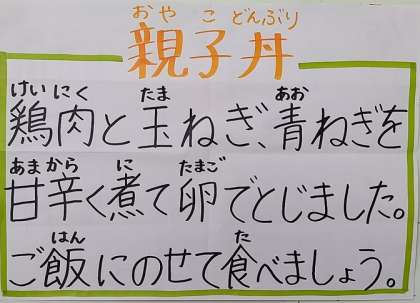 おやこどんぶり
親子丼
けいにく たま あお
鶏肉と玉ねぎ、青ねぎを
あまから に たまご
甘辛く煮て卵でとじました。
はん た
ご飯にのせて食べましょう。